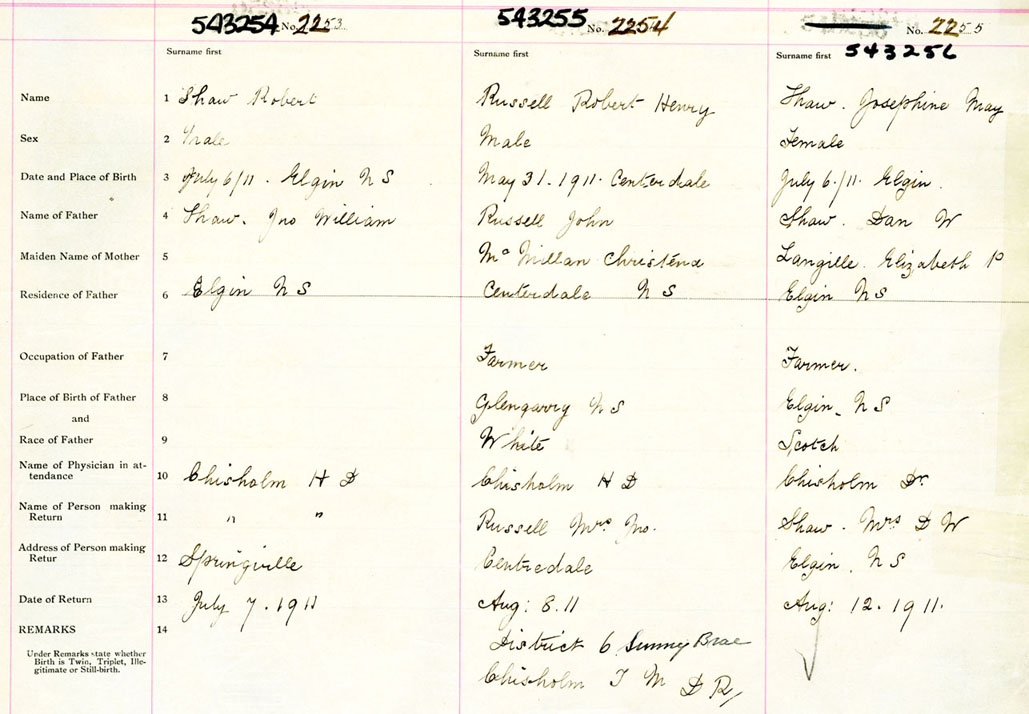 543254 No. 2253 543255 No. 2254 No. 2255
Surname first Surname first Surname first 543256
Name 1 Shaw Robert Russell Robert Henry Shaw. Josephine May
Sex 2 Male Male Female
Date and Place of Birth 3 July 6/11. Elgin N S May 31. 1911. Centerdale July 6./11. Elgin.
Name of Father 4 Shaw. Jno William Russell John Shaw. Dan W
Maiden Name of Mother 5 Mc Millan Christena Langille. Elizabeth P
Residence of Father 6 Elgin N S Centerdale N S Elgin N S
Occupation of Father 7 Farmer Farmer.
Place of Birth of Father 8 Glengarry N S Elgin. N S
and
Race of Father 9 White Scotch
Name of Physician in at-
tendance 10 Chisholm H D Chisholm H D Chisholm Dr.
Name of Person making
Return 11 " " Russell Mrs Jno. Shaw. Mrs D W
Address of Person making
Retur 12 Springville Centredale Elgin. N S
Date of Return 13 July 7. 1911 Aug: 8. 11 Aug: 12. 1911.
REMARKS 14
Under Remarks state whether
Birth is Twin, Triplet, Ille-
gitimate or Still-birth.
District 6 Sunny Brae
Chisholm J M D R